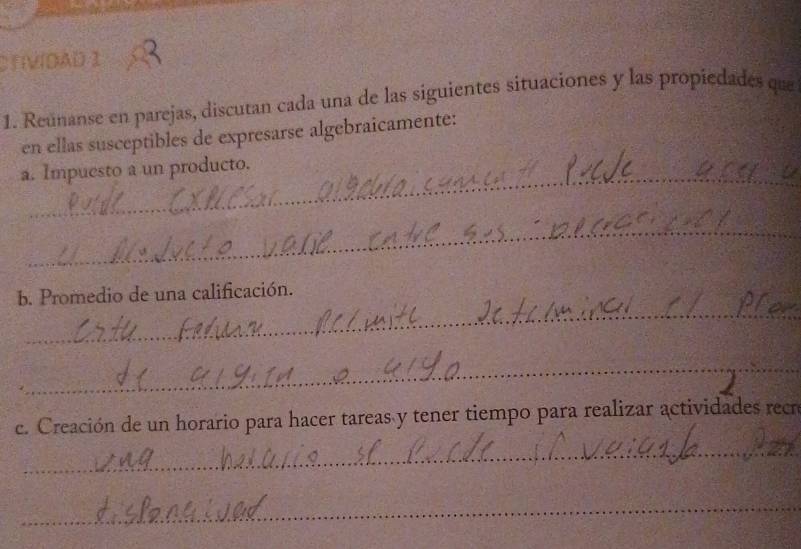 ACTIVIDAD 1
1. Reúnanse en parejas, discutan cada una de las siguientes situaciones y las propiedades que
en ellas susceptibles de expresarse algebraicamente:
a. Impuesto a un producto.
puede expresar algebraicament puede acer
el producto varie entre sus operaciones
b. Promedio de una calificación.
permite determinar el
de algien o algo
c. Creación de un horario para hacer tareas y tener tiempo para realizar actividades recre
una horario se puede ir vaiando por